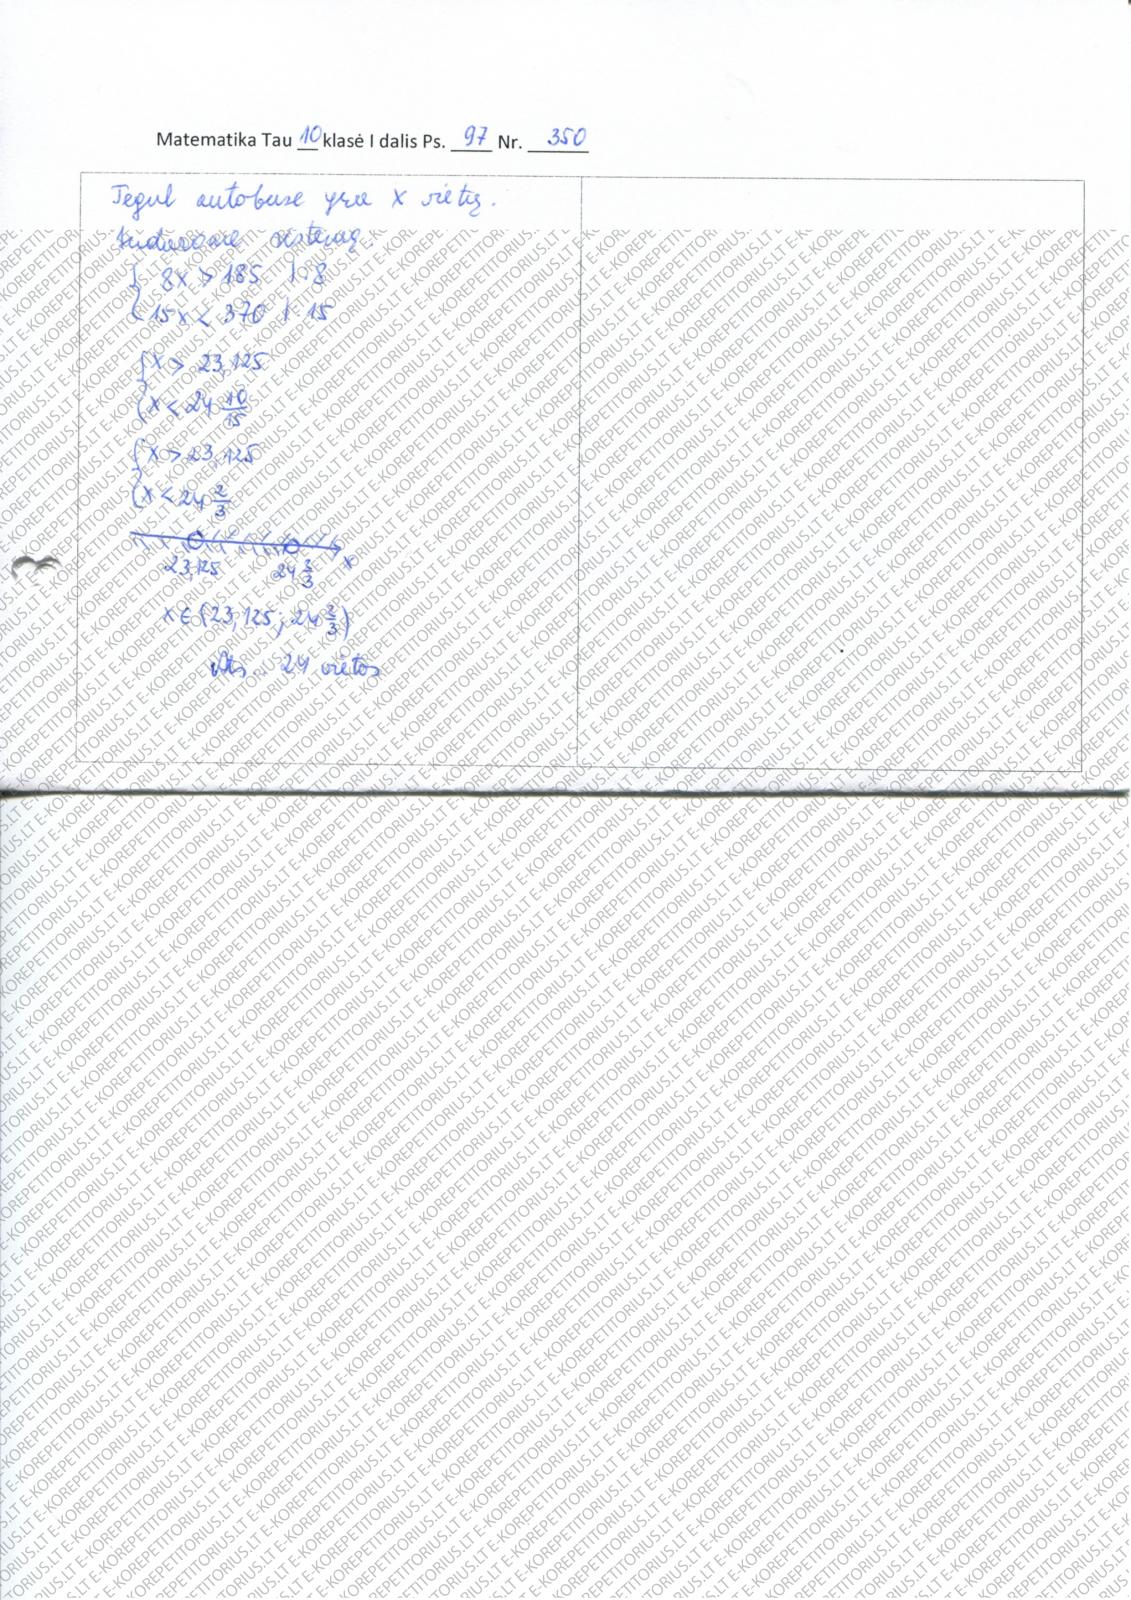 Matematika Tau 10 klasė I dalis Ps. 97 Nr. 350
Tegul autobuse yra x vietų.
Sudarome sistemą.
{ 8x > 185 |:8
{ 15x < 370 |:15
{ x > 23,125
{ x < 24 10/15
{ x > 23,125
{ x < 24 2/3
23,125 24 2/3 x
x ∈ (23,125; 24 2/3)
Ats.: 24 vietos
E-KOREPETITORIUS.LT